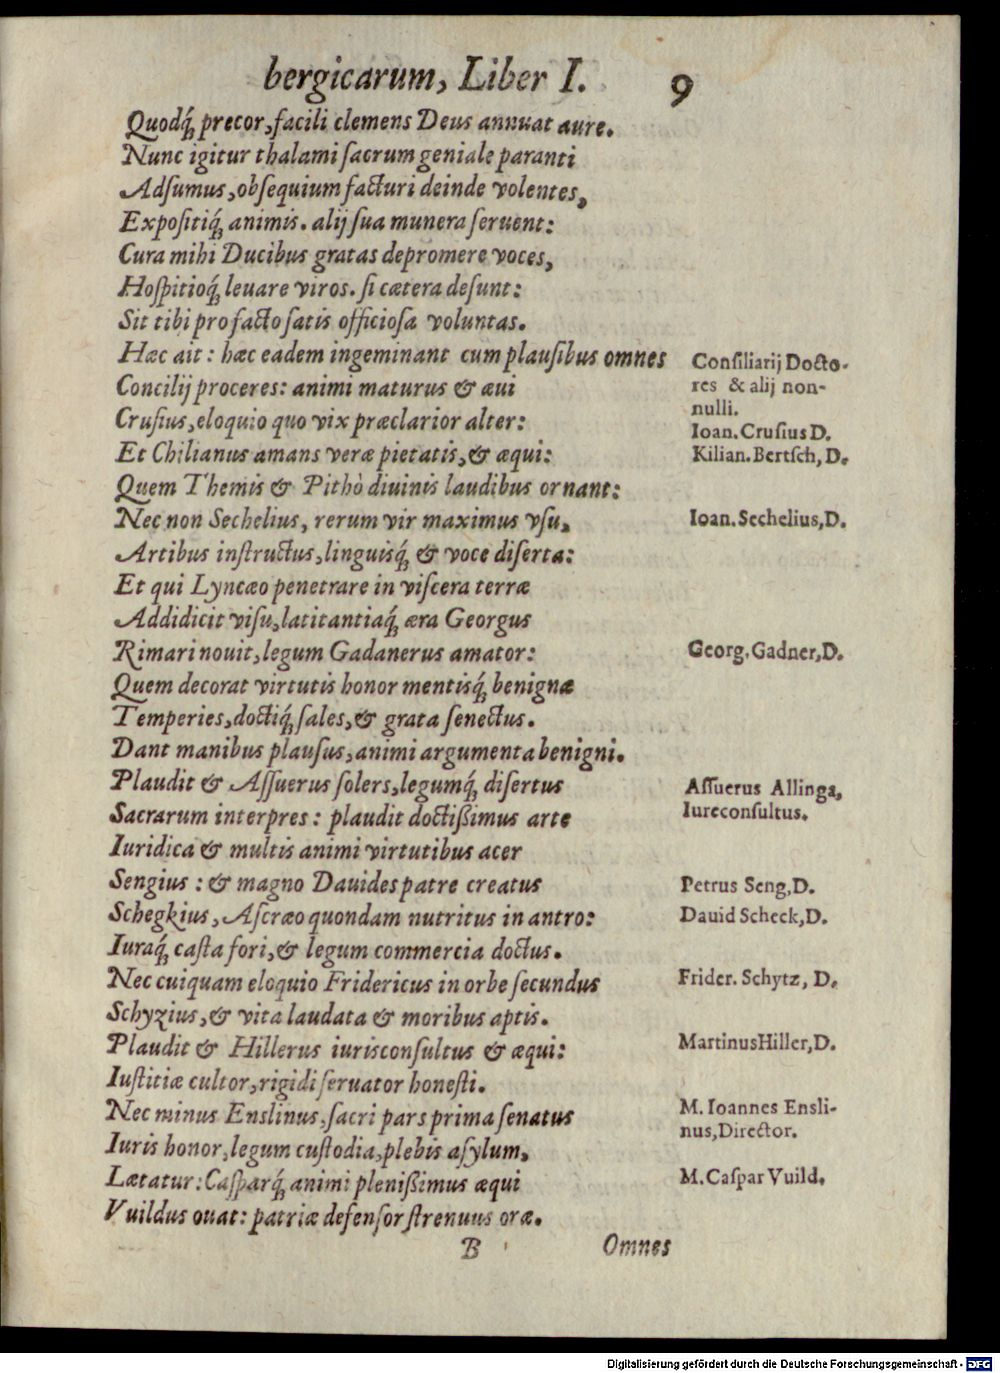 bergicarum, Liber I. 9
Quodq́; precor, facili clemens Deus annuat aure.
Nunc igitur thalami sacrum geniale paranti
Adsumus, obsequium facturi deinde volentes,
Expositiq́; animis. alij sua munera seruent:
Cura mihi Ducibus gratas depromere voces,
Hospitioq́; leuare viros. si cætera desunt:
Sit tibi pro facto satis officiosa voluntas.
Hæc ait: hæc eadem ingeminant cum plausibus omnes
Consiliarij Docto-
res & alij non-
nulli.
Concilij proceres: animi maturus & æui
Crusius, eloquio quo vix præclarior alter:
Ioan. Crusius D.
Et Chilianus amans veræ pietatis, & æqui:
Kilian. Bertsch, D.
Quem Themis & Pithò diuinis laudibus ornant:
Nec non Sechelius, rerum vir maximus vsu,
Ioan. Sechelius, D.
Artibus instructus, linguisq́; & voce diserta:
Et qui Lyncæo penetrare in viscera terræ
Addidicit visu, latitantiaq́; æra Georgus
Rimari nouit, legum Gadanerus amator:
Georg. Gadner, D.
Quem decorat virtutis honor mentisq́; benignæ
Temperies, doctiq́; sales, & grata senectus.
Dant manibus plausus, animi argumenta benigni.
Plaudit & Assuerus solers, legumq́; disertus
Assuerus Allinga,
Iureconsultus.
Sacrarum interpres: plaudit doctißimus arte
Iuridica & multis animi virtutibus acer
Sengius: & magno Dauides patre creatus
Petrus Seng, D.
Schegkius, Ascræo quondam nutritus in antro:
Dauid Scheck, D.
Iuraq́; casta fori, & legum commercia doctus.
Nec cuiquam eloquio Fridericus in orbe secundus
Frider. Schytz, D.
Schyzius, & vita laudata & moribus aptis.
Plaudit & Hillerus iurisconsultus & æqui:
Martinus Hiller, D.
Iustitiæ cultor, rigidi seruator honesti.
Nec minus Enslinus, sacri pars prima senatus
M. Ioannes Ensli-
nus, Director.
Iuris honor, legum custodia, plebis asylum,
Lætatur: Casparq́; animi plenißimus æqui
M. Caspar Vuild.
Vuildus ouat: patriæ defensor strenuus oræ.
B Omnes
Digitalisierung gefördert durch die Deutsche Forschungsgemeinschaft - DFG